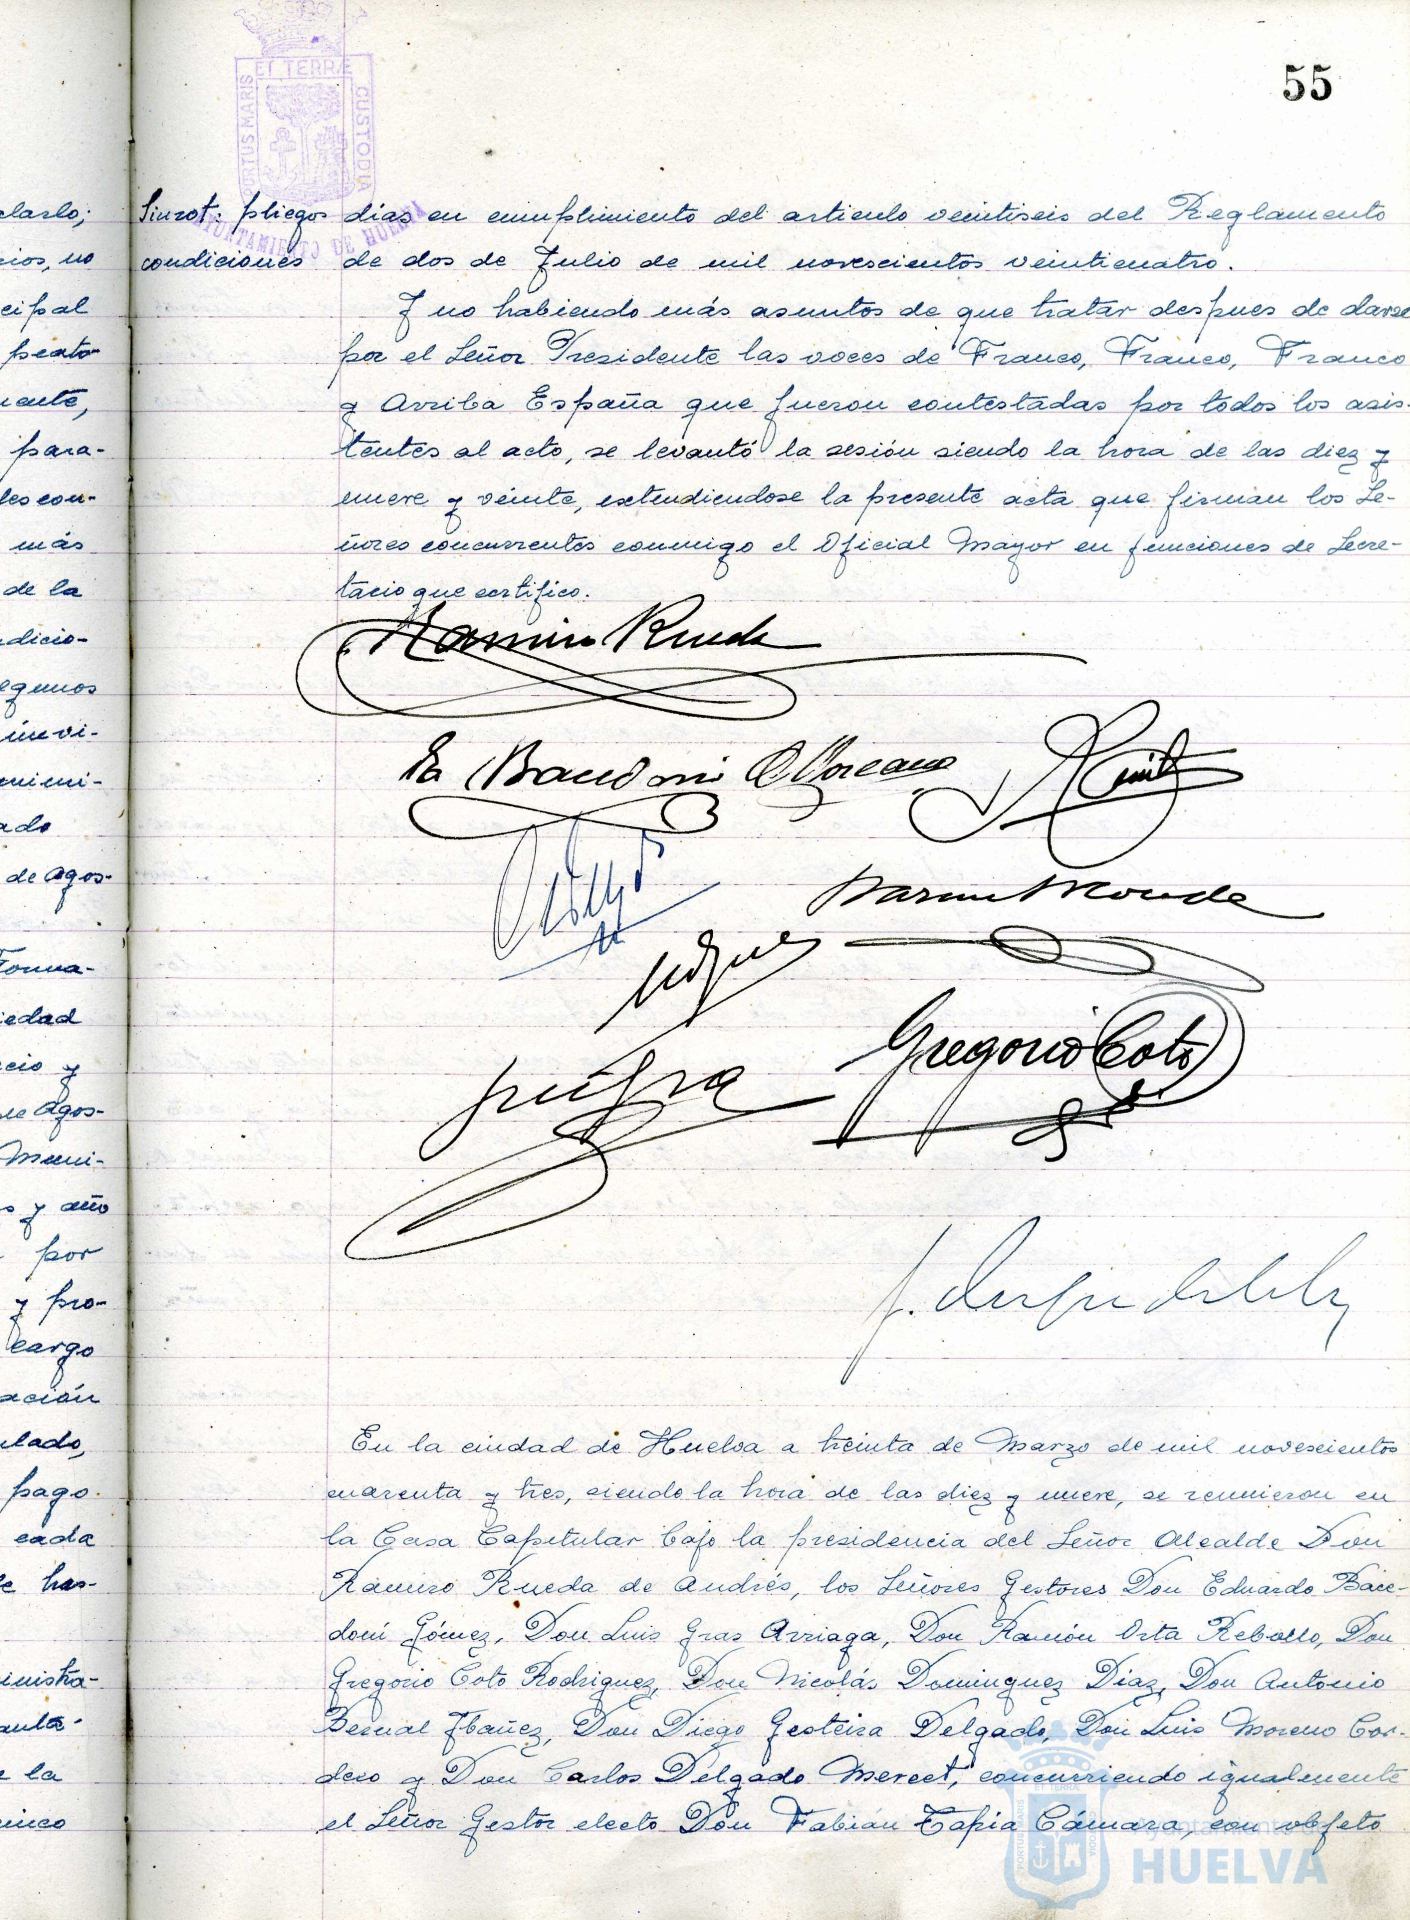 55
ET TERRÆ
PORTUS MARIS
CUSTODIA
AYUNTAMIENTO DE HUELVA
clarlo;
cios, no
cipal
mente,
para-
des con-
más
de la
ndicio-
egunos
ado
de Agos-
Forma-
iedad
cio y
de Agos-
Muni-
s y año
por
y pro-
cargo
ación
ulado,
pago
cada
e has-
inistra-
e la
cinco
Siurot: pliegos
condiciones
días en cumplimiento del articulo veintiseis del Reglamento
de dos de Julio de mil novescientos veinticuatro.
Y no habiendo más asuntos de que tratar despues de darse
por el Señor Presidente las voces de Franco, Franco, Franco
y Arriba España que fueron contestadas por todos los asis-
tentes al acto, se levantó la sesión siendo la hora de las diez y
nueve y veinte, extendiendose la presente acta que firman los Se-
ñores concurrentes conmigo el Oficial Mayor en funciones de Secre-
tario que certifico.
Ramiro Rueda
Gregorio Coto
En la ciudad de Huelva a treinta de Marzo de mil novescientos
cuarenta y tres, siendo la hora de las diez y nueve, se reunieron en
la Casa Capitular bajo la presidencia del Señor Alcalde Don
Ramiro Rueda de Andrés, los Señores Gestores Don Eduardo Bace-
doní Gómez, Don Luis Gras Arriaga, Don Ramón Orta Rebollo, Don
Gregorio Coto Rodriguez, Don Nicolás Dominguez Díaz, Don Antonio
Bernal Ibañez, Don Diego Gesteira Delgado, Don Luis Moreno Cor-
dero y Don Carlos Delgado Mercet, concurriendo igualmente
el Señor Gestor electo Don Fabián Tapia Cámara, con obfeto
Ayuntamiento de
HUELVA